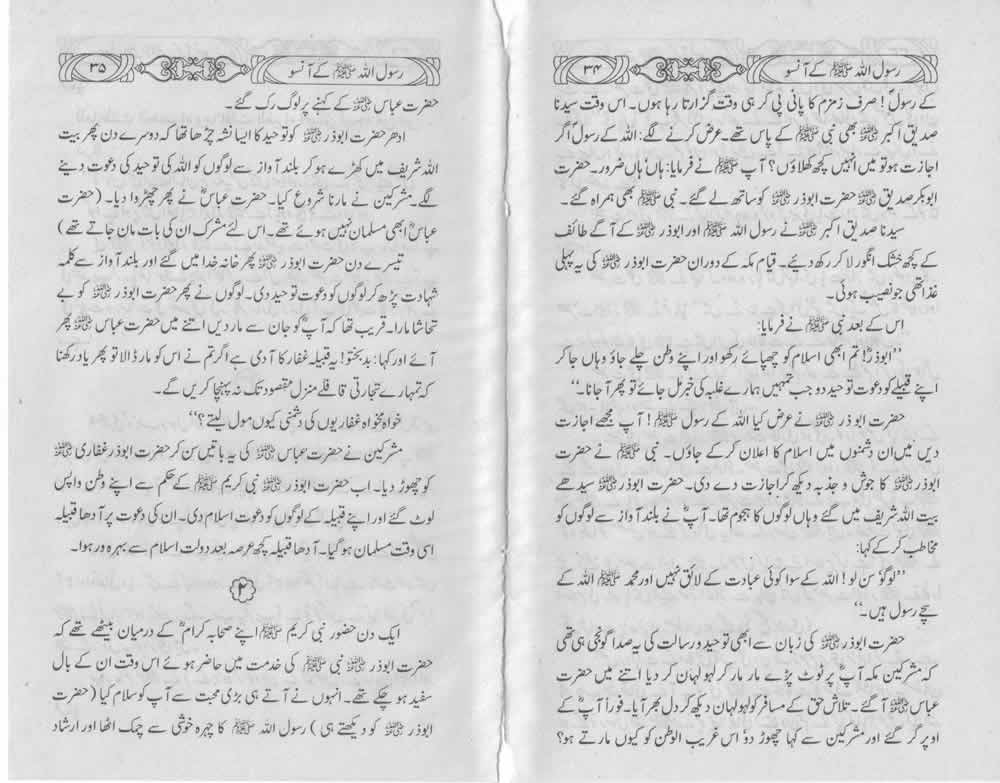 رسول اللہ ﷺ کے آنسو
۳۴
کے رسولؐ! صرف زمزم کا پانی پی کر ہی وقت گزارتا رہا ہوں۔ اس وقت سیدنا
صدیق اکبر ؓ بھی نبی ﷺ کے پاس تھے۔ عرض کرنے لگے: اللہ کے رسولؐ اگر
اجازت ہو تو میں انہیں کچھ کھلاؤں؟ آپ ﷺ نے فرمایا: ہاں ہاں ضرور۔ حضرت
ابوبکر صدیق ؓ حضرت ابوذر ؓ کو ساتھ لے گئے۔ نبی ﷺ بھی ہمراہ گئے۔
سیدنا صدیق اکبر ؓ نے رسول اللہ ﷺ اور ابوذر ؓ کے آگے طائف
کے کچھ خشک انگور لا کر رکھ دیئے۔ قیام مکہ کے دوران حضرت ابوذر ؓ کی یہ پہلی
غذا تھی جو نصیب ہوئی۔
اس کے بعد نبی ﷺ نے فرمایا:
’’ابوذرؓ! تم ابھی اسلام کو چھپائے رکھو اور اپنے وطن چلے جاؤ وہاں جا کر
اپنے قبیلے کو دعوت توحید دو جب تمہیں ہمارے غلبہ کی خبر مل جائے تو پھر آ جانا۔‘‘
حضرت ابوذر ؓ نے عرض کیا اللہ کے رسول ﷺ! آپ مجھے اجازت
دیں میں ان دشمنوں میں اسلام کا اعلان کر کے جاؤں۔ نبی ﷺ نے حضرت
ابوذر ؓ کا جوش و جذبہ دیکھ کر اجازت دے دی۔ حضرت ابوذر ؓ سیدھے
بیت اللہ شریف میں گئے وہاں لوگوں کا ہجوم تھا۔ آپؓ نے بلند آواز سے لوگوں کو
مخاطب کر کے کہا:
’’لوگو‘ سن لو! اللہ کے سوا کوئی عبادت کے لائق نہیں اور محمد ﷺ اللہ کے
سچے رسول ہیں۔‘‘
حضرت ابوذر ؓ کی زبان سے ابھی توحید و رسالت کی یہ صدا گونجی ہی تھی
کہ مشرکین مکہ آپؓ پر ٹوٹ پڑے مار مار کر لہولہان کر دیا اتنے میں حضرت
عباس ؓ آ گئے۔ تلاش حق کے مسافر کو لہولہان دیکھ کر دل بھر آیا۔ فوراً آپؓ کے
اوپر گر گئے اور مشرکین سے کہا چھوڑ دو‘ اس غریب الوطن کو کیوں مارتے ہو؟
رسول اللہ ﷺ کے آنسو
۳۵
حضرت عباس ؓ کے کہنے پر لوگ رک گئے۔
ادھر حضرت ابوذر ؓ کو توحید کا ایسا نشہ چڑھا تھا کہ دوسرے دن پھر بیت
اللہ شریف میں کھڑے ہو کر بلند آواز سے لوگوں کو اللہ کی توحید کی دعوت دینے
لگے۔ مشرکین نے مارنا شروع کیا۔ حضرت عباسؓ نے پھر چھڑوا دیا۔ (حضرت
عباسؓ ابھی مسلمان نہیں ہوئے تھے۔ اس لئے مشرک ان کی بات مان جاتے تھے)
تیسرے دن حضرت ابوذر ؓ پھر خانہ خدا میں گئے اور بلند آواز سے کلمہ
شہادت پڑھ کر لوگوں کو دعوت توحید دی۔ لوگوں نے پھر حضرت ابوذر ؓ کو بے
تحاشا مارا۔ قریب تھا کہ آپؓ کو جان سے مار دیں اتنے میں حضرت عباس ؓ پھر
آئے اور کہا: بدبختو! یہ قبیلہ غفار کا آدمی ہے اگر تم نے اس کو مار ڈالا تو پھر یاد رکھنا
کہ تمہارے تجارتی قافلے منزل مقصود تک نہ پہنچا کریں گے۔
خواہ مخواہ غفاریوں کی دشمنی کیوں مول لیتے؟‘‘
مشرکین نے حضرت عباس ؓ کی یہ باتیں سن کر حضرت ابوذر غفاری ؓ
کو چھوڑ دیا۔ اب حضرت ابوذر ؓ نبی کریم ﷺ کے حکم سے اپنے وطن واپس
لوٹ گئے اور اپنے قبیلہ کے لوگوں کو دعوت اسلام دی۔ ان کی دعوت پر آدھا قبیلہ
اسی وقت مسلمان ہو گیا۔ آدھا قبیلہ کچھ عرصہ بعد دولت اسلام سے بہرہ ور ہوا۔
۲
ایک دن حضور نبی کریم ﷺ اپنے صحابہ کرامؓ کے درمیان بیٹھے تھے کہ
حضرت ابوذر ؓ نبی ﷺ کی خدمت میں حاضر ہوئے اس وقت ان کے بال
سفید ہو چکے تھے۔ انہوں نے آتے ہی بڑی محبت سے آپ کو سلام کیا (حضرت
ابوذر ؓ کو دیکھتے ہی) رسول اللہ ﷺ کا چہرہ خوشی سے چمک اٹھا اور ارشاد